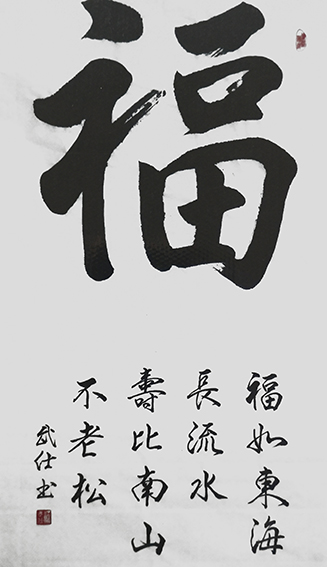 福
福如東海
長流水
壽比南山
不老松
武仕书